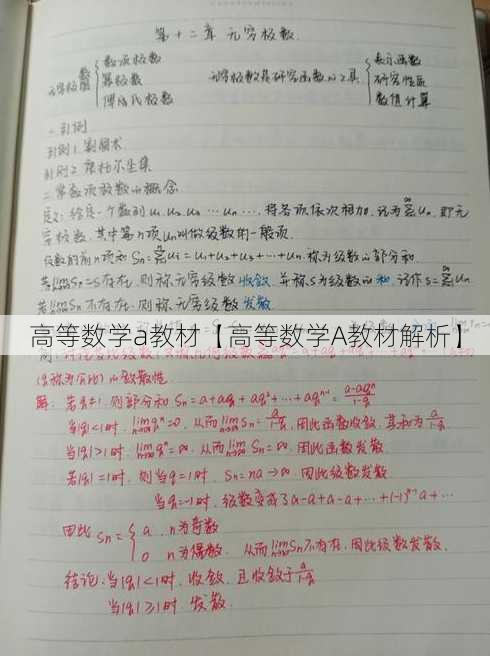 第十二章 无穷级数.
无穷级数 { 数项级数 幂级数 傅的氏级数
无穷级数是研究函数的工具 { 表示函数 研究性质 数值计算
一.引例
引例1.割圆术.
引例2.康托尔尘集
二.常数项级数的概念
定义:给定一个数列 u₁.u₂.u₃ ⋯ uₙ ⋯,将各项依次相加,记为 ∑uₙ,即无
穷级数,其中第n项uₙ叫做级数的一般项.
级数的前n项和 Sₙ=∑uᵢ=u₁+u₂+u₃+⋯+uₙ.称为级数的部分和.
若limSₙ=s存在,则称无穷级数收敛,并称s为级数的和,记作s=∑uₙ
若limSₙ不存在,则称无穷级数发散.
高等数学a教材【高等数学A教材解析】
(q称为公比)的敛散性.
解: 若q≠1,则部分和 Sₙ=a+aq+aq²+⋯+aqⁿ⁻¹=(a-aqⁿ)/(1-q)
当|q|<1时, lim qⁿ=0, 从而limSₙ=a/(1-q),因此函数收敛,其和为a/(1-q)
当|q|>1时, lim qⁿ=∞, 从而limSₙ=∞.因此函数发散
若|q|=1时, 则当q=1时, Sₙ=na→∞,因此级数发散
当q=-1时,级数变成了a-a+a-a+⋯+(-1)ⁿ⁻¹a+⋯
因此 Sₙ={ a, n为奇数
0 n为偶数. 从而limSₙ不存在,因此级数发散.
结论:当|q|<1时,收敛,且收敛于a/(1-q)
当|q|≥1时,发散.